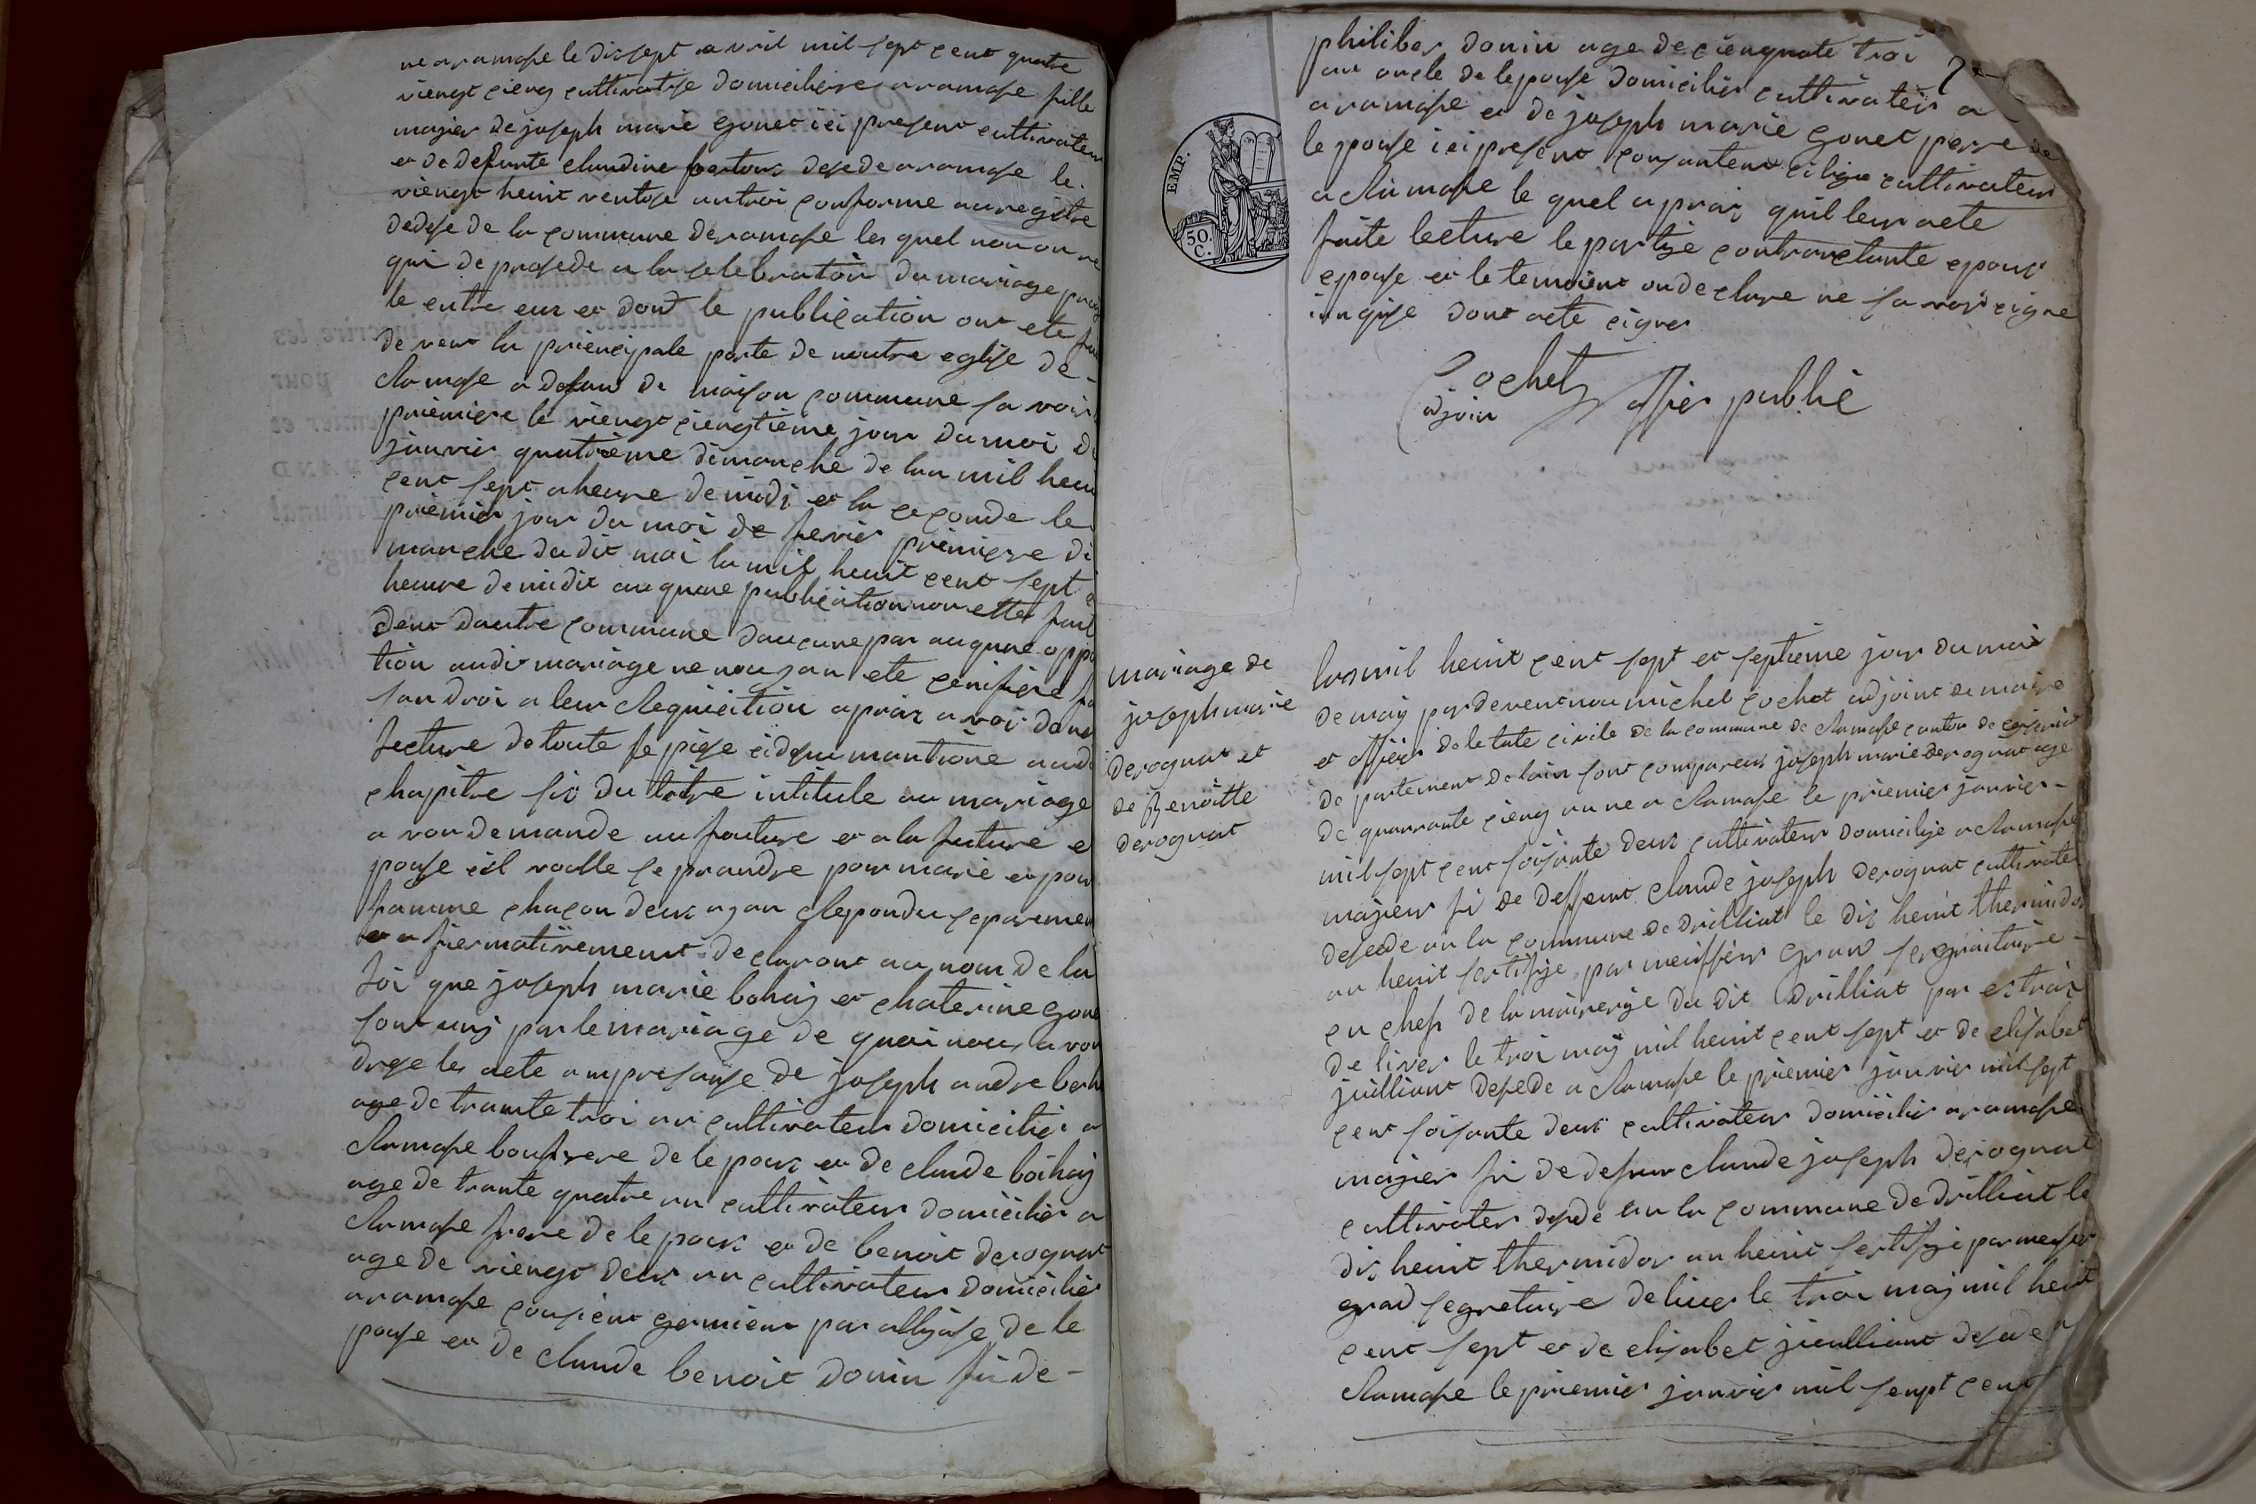 ne a ramase le disept avril mil sept cent quatre
viengt cieng cultivatrise domicilière a ramase fille
majier de joseph marie gonet ici present cultivateur
et de defunte claudine bertour desede a ramase le
viengt heuit ventose an troi conforme au registre
dedese de la commune deramase les quel nou on re
qui de prosede a la selebration du mariage proj
le entre eux et dont le publication ont ete fai
de vent la priencipale porte de noutre eglise de
Ramase a defaus de maison commune savoir
priemiere le viengt ciengtieme jour du moi de
janvier quatrieme dimanche de lan mil heui
cent sept a heure de midi et la ceconde le
priemier jour du moi de fevier priemiere di
manche du dit moi la mil heuit cent sept a
heeure de midit auqune publication non ette fait
dent dautre commune daucune par auqune oppo
tion audit mariage ne nou jan ete cenifiere fa
san droi a leur Requicition apraiz avoi done
lecture de toute le piese cideçu mantione audi
chapitre sis du titre intitule au mariage
avon demande au fouture et a la future e
pouse cil voulle se prandre pour marie et pour
famme chacon deux ajan Repondu separemen
et afiermativement declaront au nom de la
loi que joseph marie bohaj et chaterine gone
sont unj par le mariage de quoi nou avon
drese les acte an presanse de joseph andre berh
age de trante troi an cultivateur domicilier a
Ramase boufrere de le pouz et de claude boihaj
age de trante quatre an cultivateur domicilier a
Ramase frere de le pouz et de benoit derognat
age de viengt deux an cultivateur domicilier
a ramase cousient germient par allijase de le
pouse et de claude benoit donin fi de -
philiber donin age de ciengnate troi
an oncle de lepouse domicilier cultivateur a
a ramase et de joseph marie gonet perre de
le pouse ici present consantent cultivateur
a Ramase le quel apraiz quil leur aete
faite lecture le partije contractante epouz
epouse et le temoient on declare ne savoir cigne
inqise dont acte cigner
EMP.
50.
C.
Cochet
adjoin offier publie
mariage de
joseph marie
derognat et
de Benoitte
derognat
lan mil heuit cent sept et septieme jour du moi
de maij par devent nou michel cochet adjoint de maire
et offiier de letate civile de la commune de Ramase canton de ceiseria
de partement de lain sont compareux joseph marie derognat age
de quarrante cieng an ne a Ramase le priemier janvier -
mil sept cent soisante deux cultivateur domicilije a Ramase
majieur fi de deffeunt claude joseph derognat cultivater
desede an la commune de drilliat le dis heuit thermidor
an heuit sertifije par meussieur grand segraitaire -
en chefs de la mairerije du dit drilliat par estraiz
deliver le troi maij mil heuit cent sept et de elisabet
juilliant desede a Ramase le priemier janvier mil sept
cent soisante deux cultivateur domicilier a ramase
majier fi de defunt claude joseph derognat
cultivater desede an la commune de drilliat le
dis heuit thermidor an heuit sertifije par meusier
grand segretaire deliver le troi maj mil heuit
cent sept et de elisabet juilliant desede a
Ramase le priemier janvier mil senpt cent